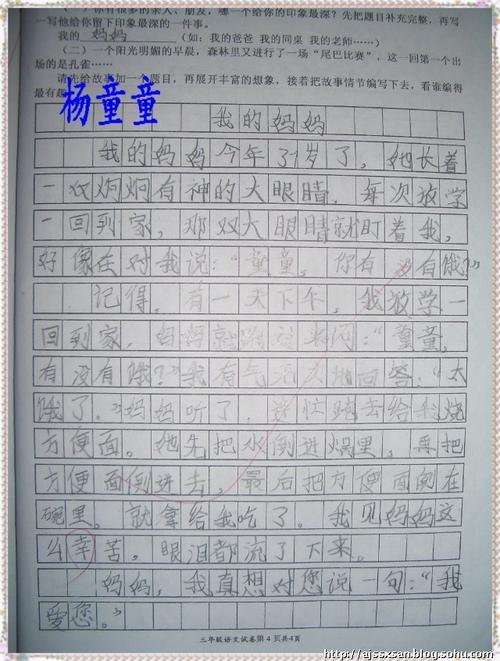 （一）你有很多的亲人、朋友，哪一个给你的印象最深？先把题目补充完整，再写
一写他给你留下印象最深的一件事。
我的 妈妈 （如：我的爸爸 我的同桌 我的老师……）
（二）一个阳光明媚的早晨，森林里又进行了一场“尾巴比赛”，这一回第一个出
场的是孔雀……
请先给故事加一个题目，再展开丰富的想象，接着把故事情节编写下去，看谁编得
最有趣
杨童童
我的妈妈
我的妈妈今年31岁了，她长着
一双炯炯有神的大眼睛。每次放学
一回到家，那双大眼睛就盯着我，
好像在对我说：“童童，你有没有饿？”
记得，有一天下午，我放学一
回到家，妈妈就跑过来问：“童童，
有没有饿？”我有气无力地回答：“太
饿了。”妈妈听了，连忙跑去给我烧
方便面。她先把水倒进锅里，再把
方便面倒进去，最后把方便面倒在
碗里。就拿给我吃了。我见妈妈这
么幸苦，眼泪都流了下来。
妈妈，我真想对您说一句：“我
爱您。”
三年级语文试卷第4页共4页
http://ajssxsan.blog.sohu.com/